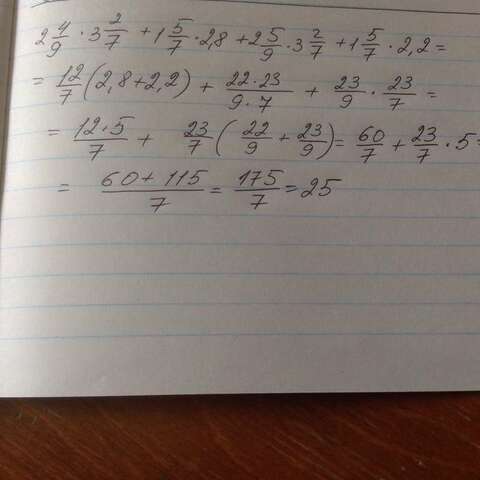 2 4/9 · 3 2/7 + 1 5/7 · 2,8 + 2 5/9 · 3 2/7 + 1 5/7 · 2,2 =
= 12/7 (2,8 + 2,2) + 22·23/9·7 + 23/9 · 23/7 =
= 12·5/7 + 23/7 (22/9 + 23/9) = 60/7 + 23/7 · 5 =
= 60 + 115/7 = 175/7 = 25